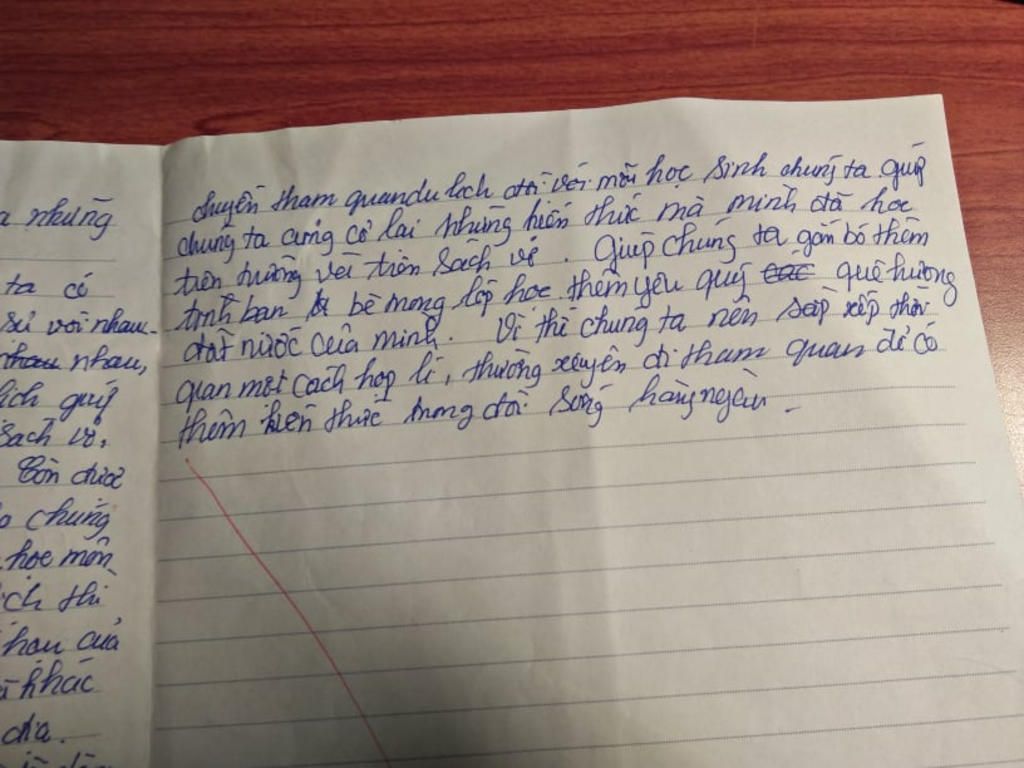 a những
ta có
sử với nhau
nhau nhau,
lịch giúp
sách vở,
Còn được
chúng
học môn
ch thì
hau của
khác
địa.
chuyến tham quan du lịch đối với mỗi học sinh chúng ta giúp
chúng ta củng cố lại những kiến thức mà mình đã học
trên trường với trên sách vở. Giúp chúng ta gắn bó thêm
tình bạn bè trong lớp học thêm yêu quý các quê hương
đất nước của mình. Vì thế chúng ta nên sắp xếp thời
gian một cách hợp lí, thường xuyên đi tham quan để có
thêm kiến thức trong đời sống hàng ngày.